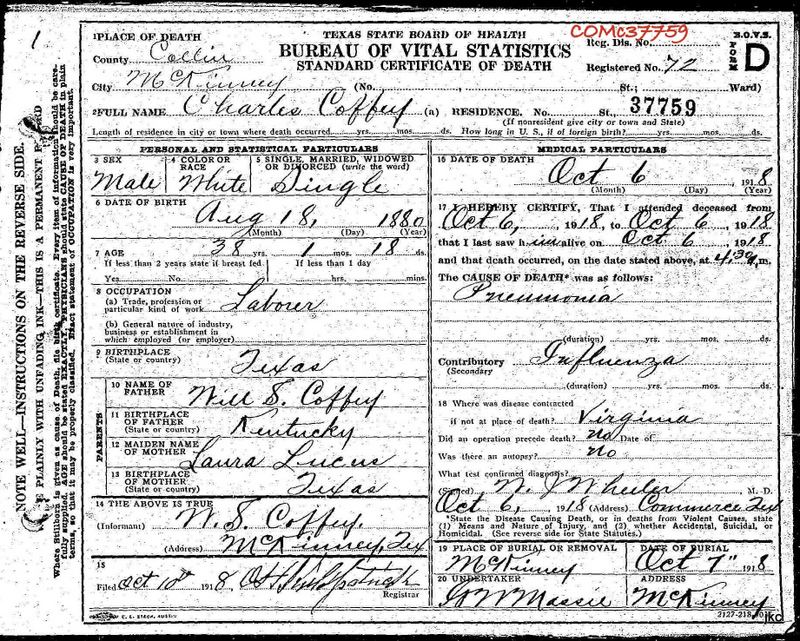 TEXAS STATE BOARD OF HEALTH
COMC37759
B.O.V.S.
BUREAU OF VITAL STATISTICS
STANDARD CERTIFICATE OF DEATH
Reg. Dis. No.
Registered No. 72
FORM D
1 PLACE OF DEATH
County Collin
City McKinney (No. St.; Ward)
2 FULL NAME Charles Coffey (a) RESIDENCE. No. St., 37759
(If nonresident give city or town and State)
Length of residence in city or town where death occurred yrs. mos. ds. How long in U. S., if of foreign birth? yrs. mos. ds.
NOTE WELL—INSTRUCTIONS ON THE REVERSE SIDE.
E PLAINLY WITH UNFADING INK—THIS IS A PERMANENT
PERSONAL AND STATISTICAL PARTICULARS
3 SEX
Male
4 COLOR OR RACE
White
5 SINGLE, MARRIED, WIDOWED OR DIVORCED (write the word)
Single
6 DATE OF BIRTH
Aug 18, 1880
(Month) (Day) (Year)
7 AGE 38 yrs. 1 mos. 18 ds.
If less than 2 years state if breast fed
If less than 1 day
Yes No hrs. mins.
8 OCCUPATION
(a) Trade, profession or
particular kind of work Laborer
(b) General nature of industry,
business or establishment in
which employed (or employer)
9 BIRTHPLACE
(State or country) Texas
PARENTS
10 NAME OF
FATHER Will S. Coffey
11 BIRTHPLACE
OF FATHER
(State or country) Kentucky
12 MAIDEN NAME
OF MOTHER Laura Lucus
13 BIRTHPLACE
OF MOTHER
(State or country) Texas
14 THE ABOVE IS TRUE
(Informant) W. S. Coffey
(Address) McKinney, Tex
15
Filed Oct 10" 1918
Registrar
MEDICAL PARTICULARS
16 DATE OF DEATH
Oct 6 1918
(Month) (Day) (Year)
17 I HEREBY CERTIFY, That I attended deceased from
Oct 6, 1918, to Oct 6, 1918
that I last saw him alive on Oct 6, 1918
and that death occurred, on the date stated above, at m.
The CAUSE OF DEATH* was as follows:
Pneumonia
(duration) yrs. mos. ds.
Contributory Influenza
(Secondary
(duration) yrs. mos. ds.
18 Where was disease contracted
if not at place of death? Virginia
Did an operation precede death? No Date of
Was there an autopsy? No
What test confirmed diagnosis?
(Signed) W. J Wheeler M. D.
Oct 6, 1918 (Address) Commerce Tex
*State the Disease Causing Death, or in deaths from Violent Causes, state
(1) Means and Nature of Injury, and (2) whether Accidental, Suicidal, or
Homicidal. (See reverse side for State Statutes.)
19 PLACE OF BURIAL OR REMOVAL
McKinney
DATE OF BURIAL
Oct 7" 1918
20 UNDERTAKER
Massie
ADDRESS
McKinney
2127-218
jkd